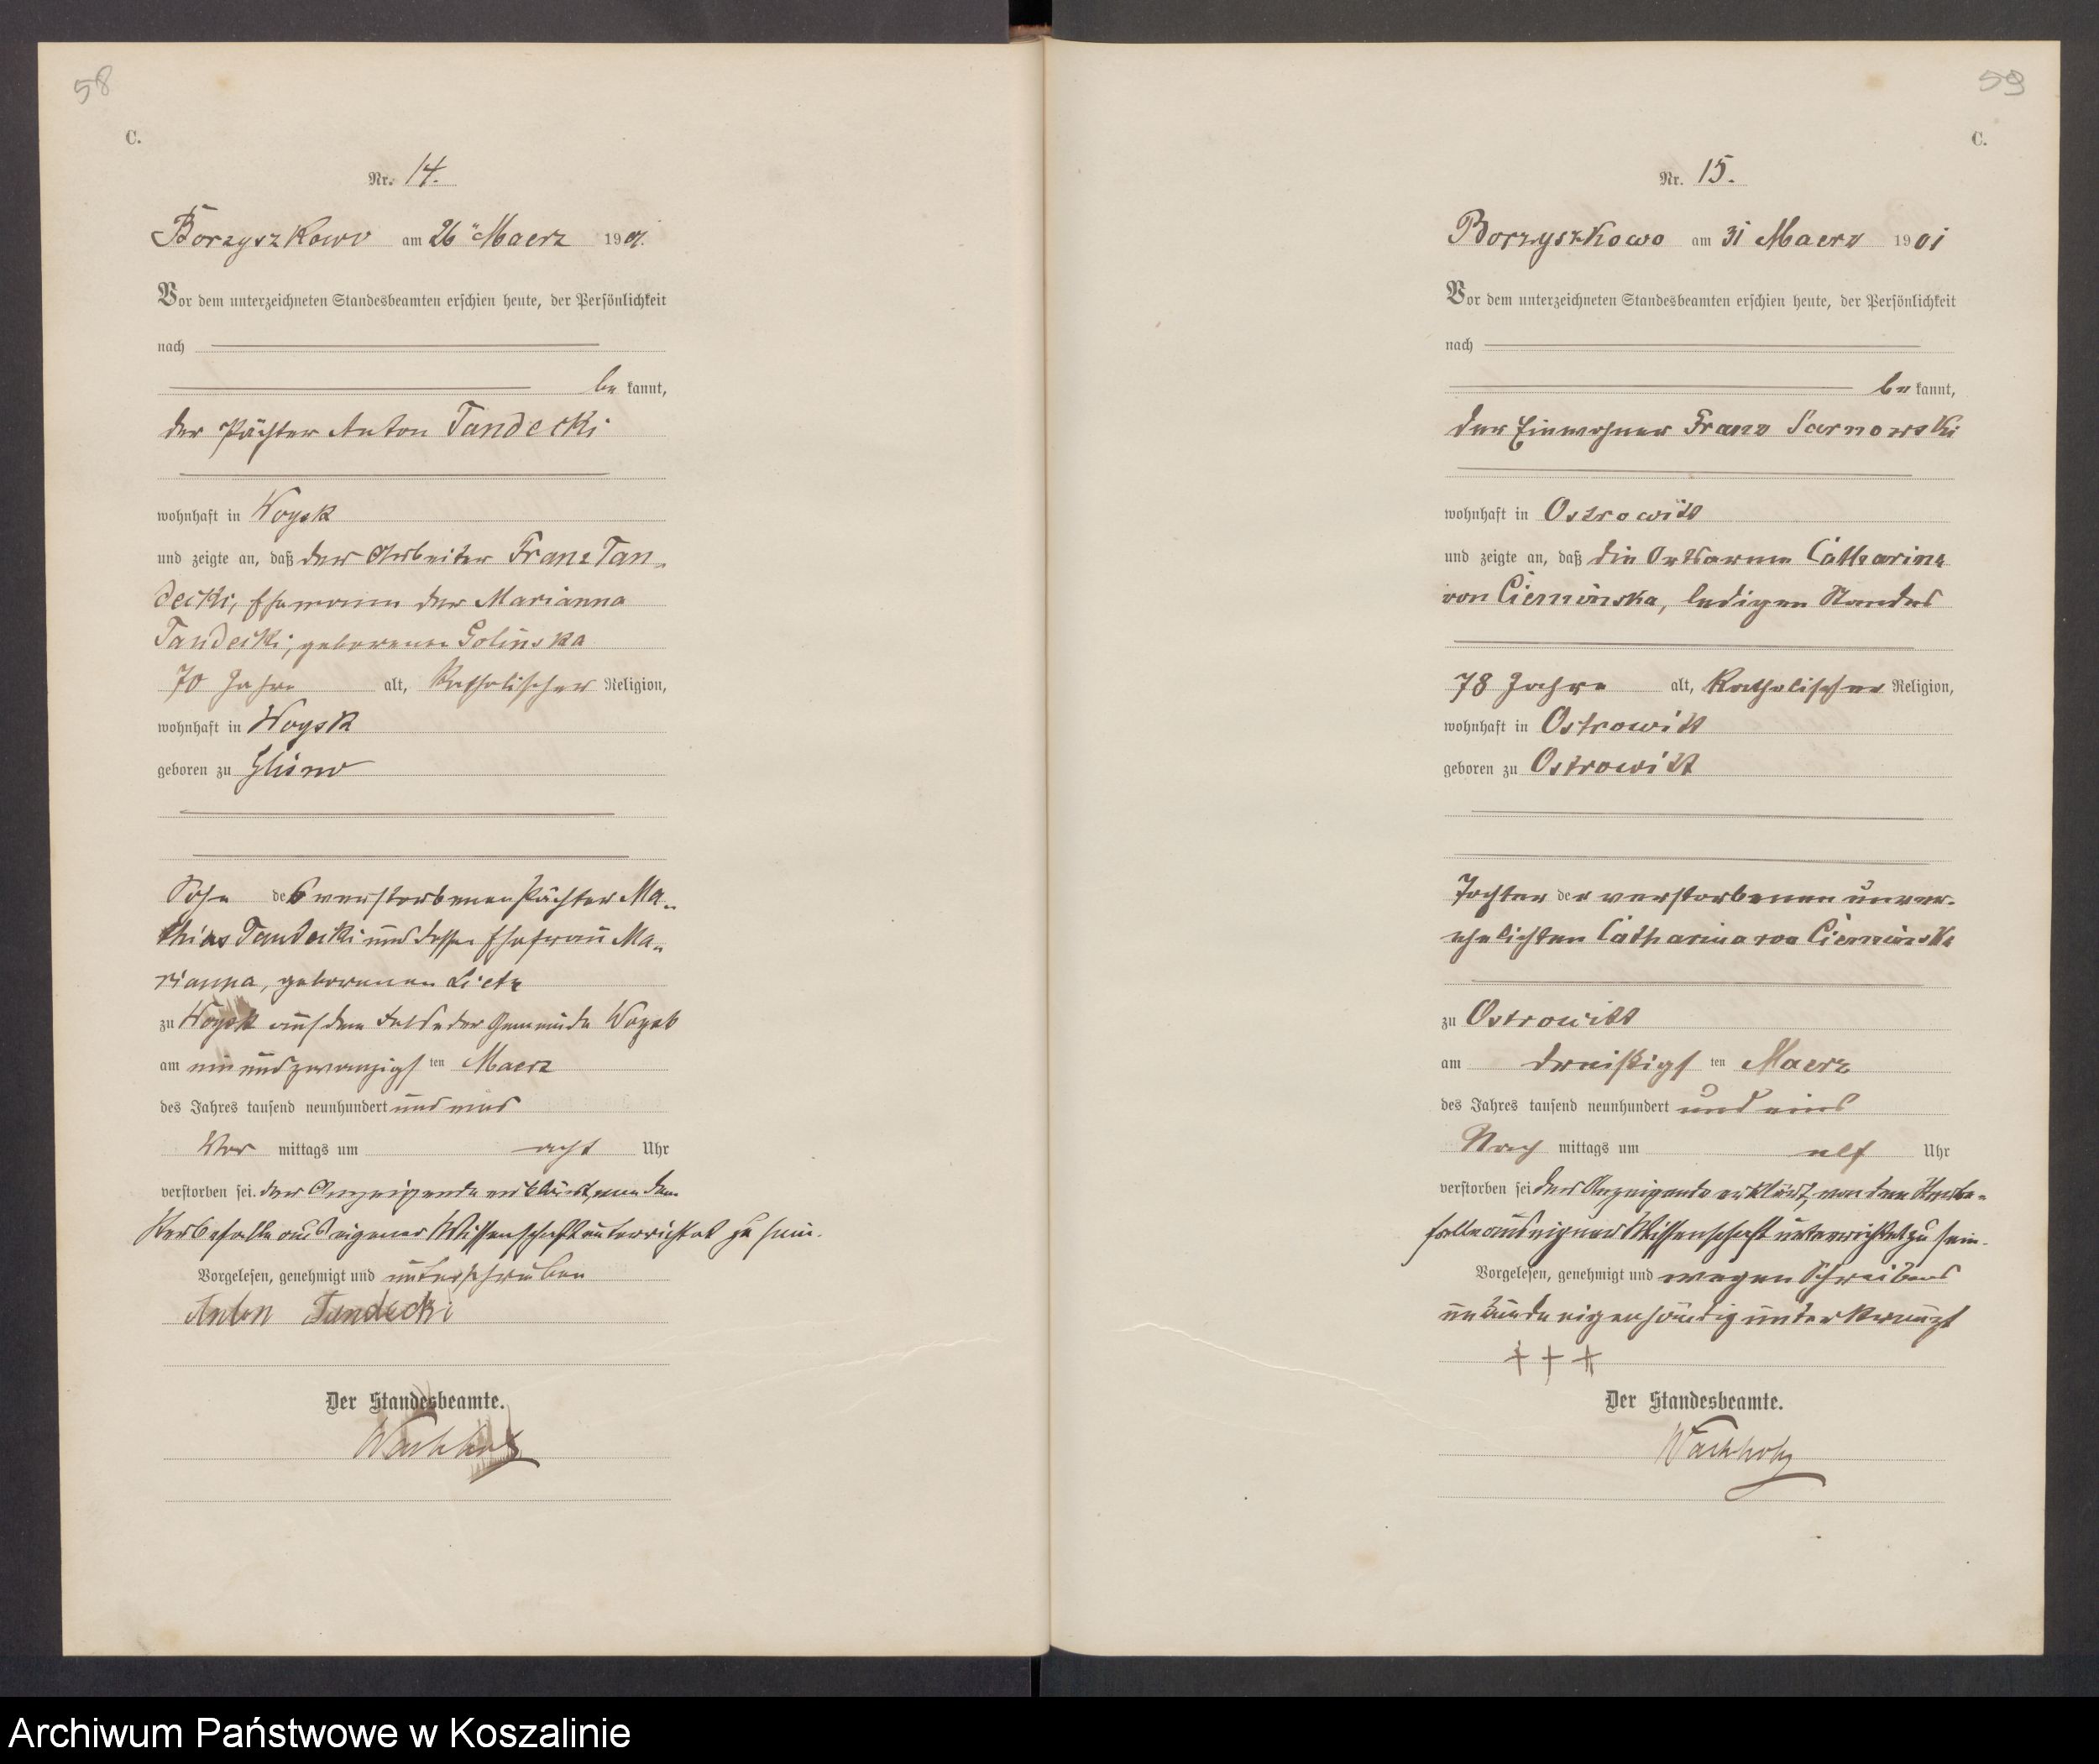 58
C.
Nr. 14.
Borzyszkowo am 26 Maerz 1901.
Vor dem unterzeichneten Standesbeamten erschien heute, der Persönlichkeit
nach
be kannt,
der Pächter Anton Tandecki
wohnhaft in Woysk
und zeigte an, daß der Arbeiter Franz Tan-
decki, Ehemann der Marianna
Tandecki, geborenen Golinska
70 Jahre alt, katholischer Religion,
wohnhaft in Woysk
geboren zu Glisno
Sohn des verstorbenen Pächter Ma-
thias Tandecki und dessen Ehefrau Ma-
rianna, geborenen Lietz
zu Woysk auf dem Felde der Gemeinde Woysk
am ein und zwanzigs ten Maerz
des Jahres tausend neunhundert und eins
Vor mittags um acht Uhr
verstorben sei. der Anzeigende erklärt, von dem
Sterbefalle aus eigener Wissenschaft unterrichtet zu sein.
Vorgelesen, genehmigt und unterschrieben
Anton Tandecki
Der Standesbeamte.
Wachholz
59
C.
Nr. 15.
Borzyszkowo am 31 Maerz 1901
Vor dem unterzeichneten Standesbeamten erschien heute, der Persönlichkeit
nach
be kannt,
der Einwohner Franz Sarnowski
wohnhaft in Ostrowitt
und zeigte an, daß die Ortsarme Catharina
von Cierninska, ledigen Standes
78 Jahre alt, katholischer Religion,
wohnhaft in Ostrowitt
geboren zu Ostrowitt
Tochter der verstorbenen unver-
ehelichten Catharina von Cierninska
zu Ostrowitt
am dreißigs ten Maerz
des Jahres tausend neunhundert und eins
Nach mittags um elf Uhr
verstorben sei der Anzeigende erklärt, von dem Sterbe-
falle aus eigener Wissenschaft unterrichtet zu sein.
Vorgelesen, genehmigt und wegen Schreibens
unkunde eigenhändig unterkreuzt
+++
Der Standesbeamte.
Wachholz
Archiwum Państwowe w Koszalinie